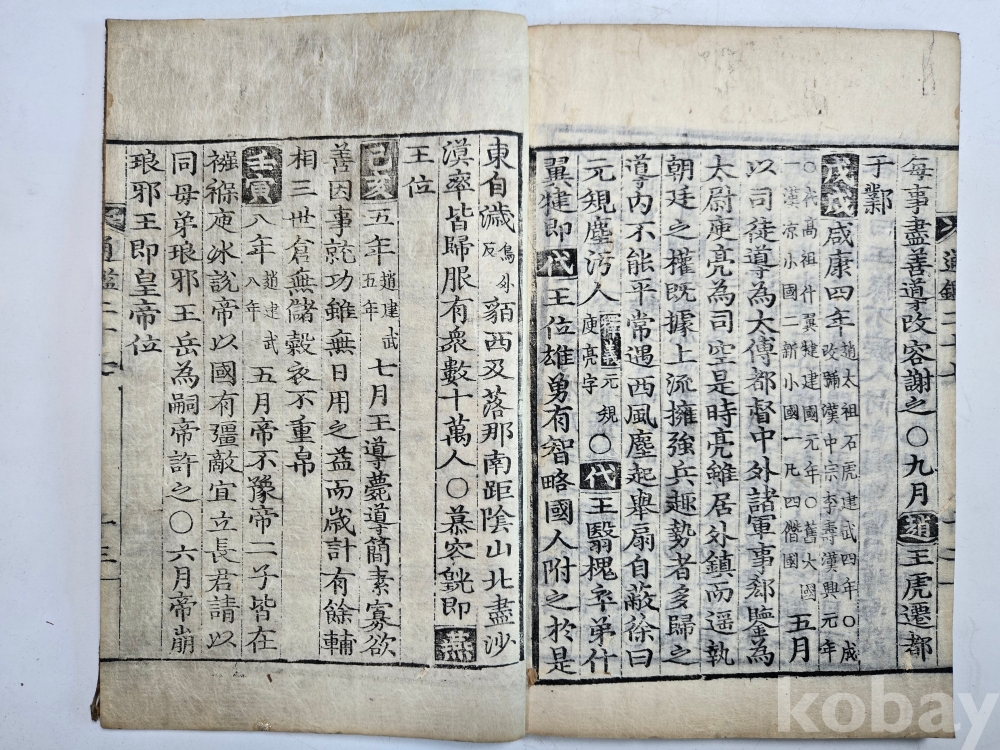 每事盡善導改容謝之○九月趙王虎遷都
于鄴
戊戌咸康四年趙太祖石虎建武四年○成改號漢中宗李壽漢興元年
○代高祖什翼犍建國元年○舊大國一漢凉小國二新小國一凡四僭國五月
以司徒導為太傅都督中外諸軍事郄鑒為
太尉庾亮為司空是時亮雖居外鎮而遥執
朝廷之權既據上流擁強兵趣勢者多歸之
導内不能平常遇西風塵起舉扇自蔽徐曰
元規塵汚人釋義元規庾亮字○代王翳槐卒弟什
翼犍即代王位雄勇有智略國人附之於是
東自濊烏外反貊西及落那南距陰山北盡沙
漠率皆歸服有衆數十萬人○慕容皝即燕
王位
己亥五年趙建武五年七月王導薨導簡素寡欲
善因事就功雖無日用之益而歲計有餘輔
相三世倉無儲穀衣不重帛
壬寅八年趙建武八年五月帝不豫帝二子皆在
襁褓庾冰說帝以國有彊敵宜立長君請以
同母弟琅邪王岳為嗣帝許之○六月帝崩
琅邪王即皇帝位
通鑑二十七
十三
kobay